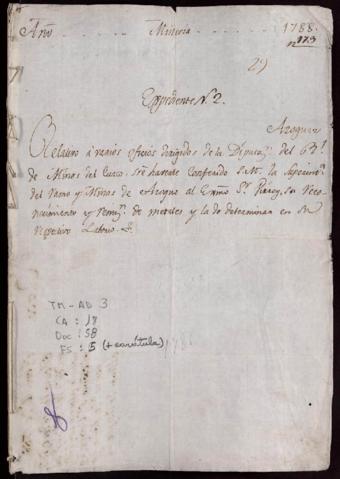 Año Mineria 1788.
n 173
2)
Expediente N. 2.
Azogues
Relativo à varios oficios dirigidos de la Diputaz.n del
de Minas del Cuzco, sre haverse Conferido S.M. la Superint.a
del ramo y Minas de Azogue al Exmo Sr Virrey, sre reco-
nocimiento y rem.n de metales y lo de determinan en su
respectivo
TM - AD 3
CA : 18
Doc : 58
FS : 5 (+ carátula)